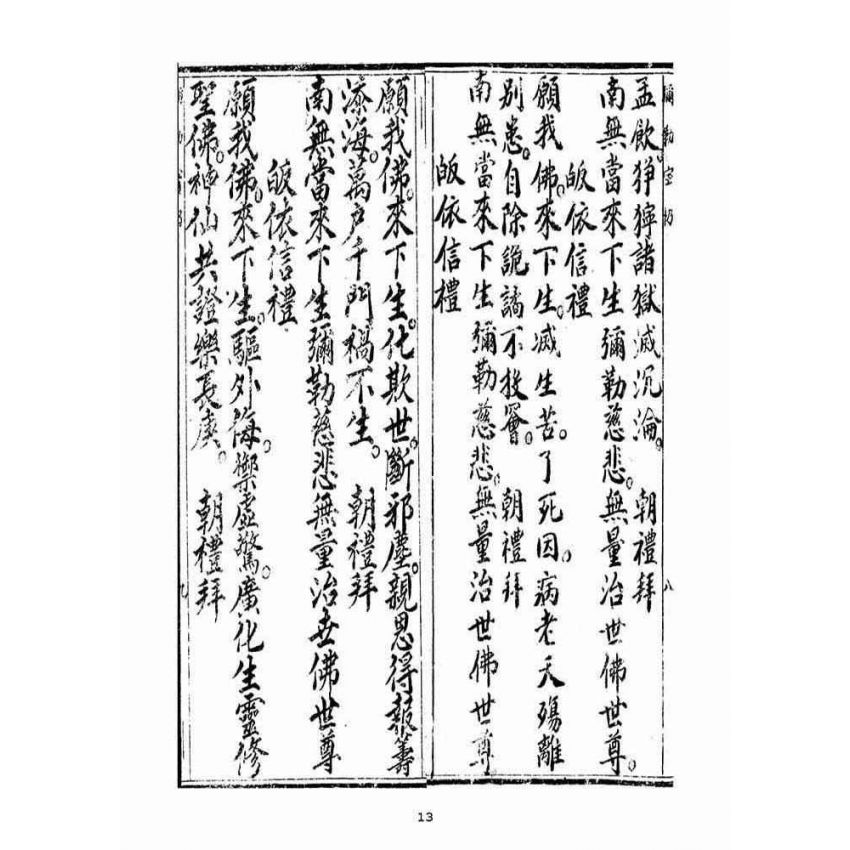 彌勒
八
孟飲狰獰諸獄滅沉淪。 朝禮拜
南無當來下生彌勒慈悲。無量治世佛世尊。
皈依信禮
願我佛。來下生。滅生苦。了死因。病老夭殤離
別恙。自除詭譎不投罾。 朝禮拜
南無當來下生彌勒慈悲。無量治世佛世尊
皈依信禮
願我佛。來下生。化欺世。斷邪塵。親恩得報籌
添海。萬戶千門禍不生。 朝禮拜
南無當來下生彌勒慈悲無量治世佛世尊
皈依信禮
願我佛。來下生。驅外侮。禦虛驚。廣化生靈修
聖佛。神仙共證樂長庚。 朝禮拜
九
13